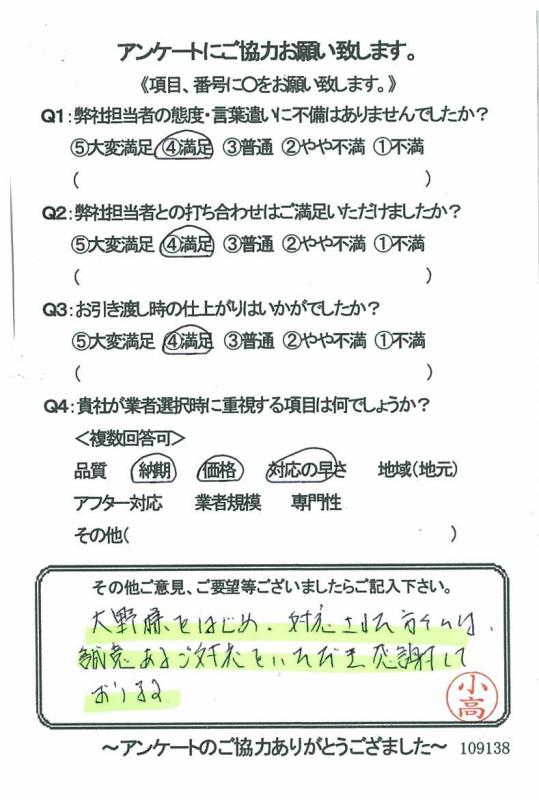 アンケートにご協力お願い致します。
《項目、番号に〇をお願い致します。》
Q1:弊社担当者の態度・言葉遣いに不備はありませんでしたか?
⑤大変満足 ④満足 ③普通 ②やや不満 ①不満
( )
Q2:弊社担当者との打ち合わせはご満足いただけましたか?
⑤大変満足 ④満足 ③普通 ②やや不満 ①不満
( )
Q3:お引き渡し時の仕上がりはいかがでしたか?
⑤大変満足 ④満足 ③普通 ②やや不満 ①不満
( )
Q4:貴社が業者選択時に重視する項目は何でしょうか?
<複数回答可>
品質 納期 価格 対応の早さ 地域(地元)
アフター対応 業者規模 専門性
その他( )
その他ご意見、ご要望等ございましたらご記入下さい。
大野様をはじめ、対応された方々は、
誠意あるご対応をいただき感謝して
おります
小高
~アンケートのご協力ありがとうござました~ 109138